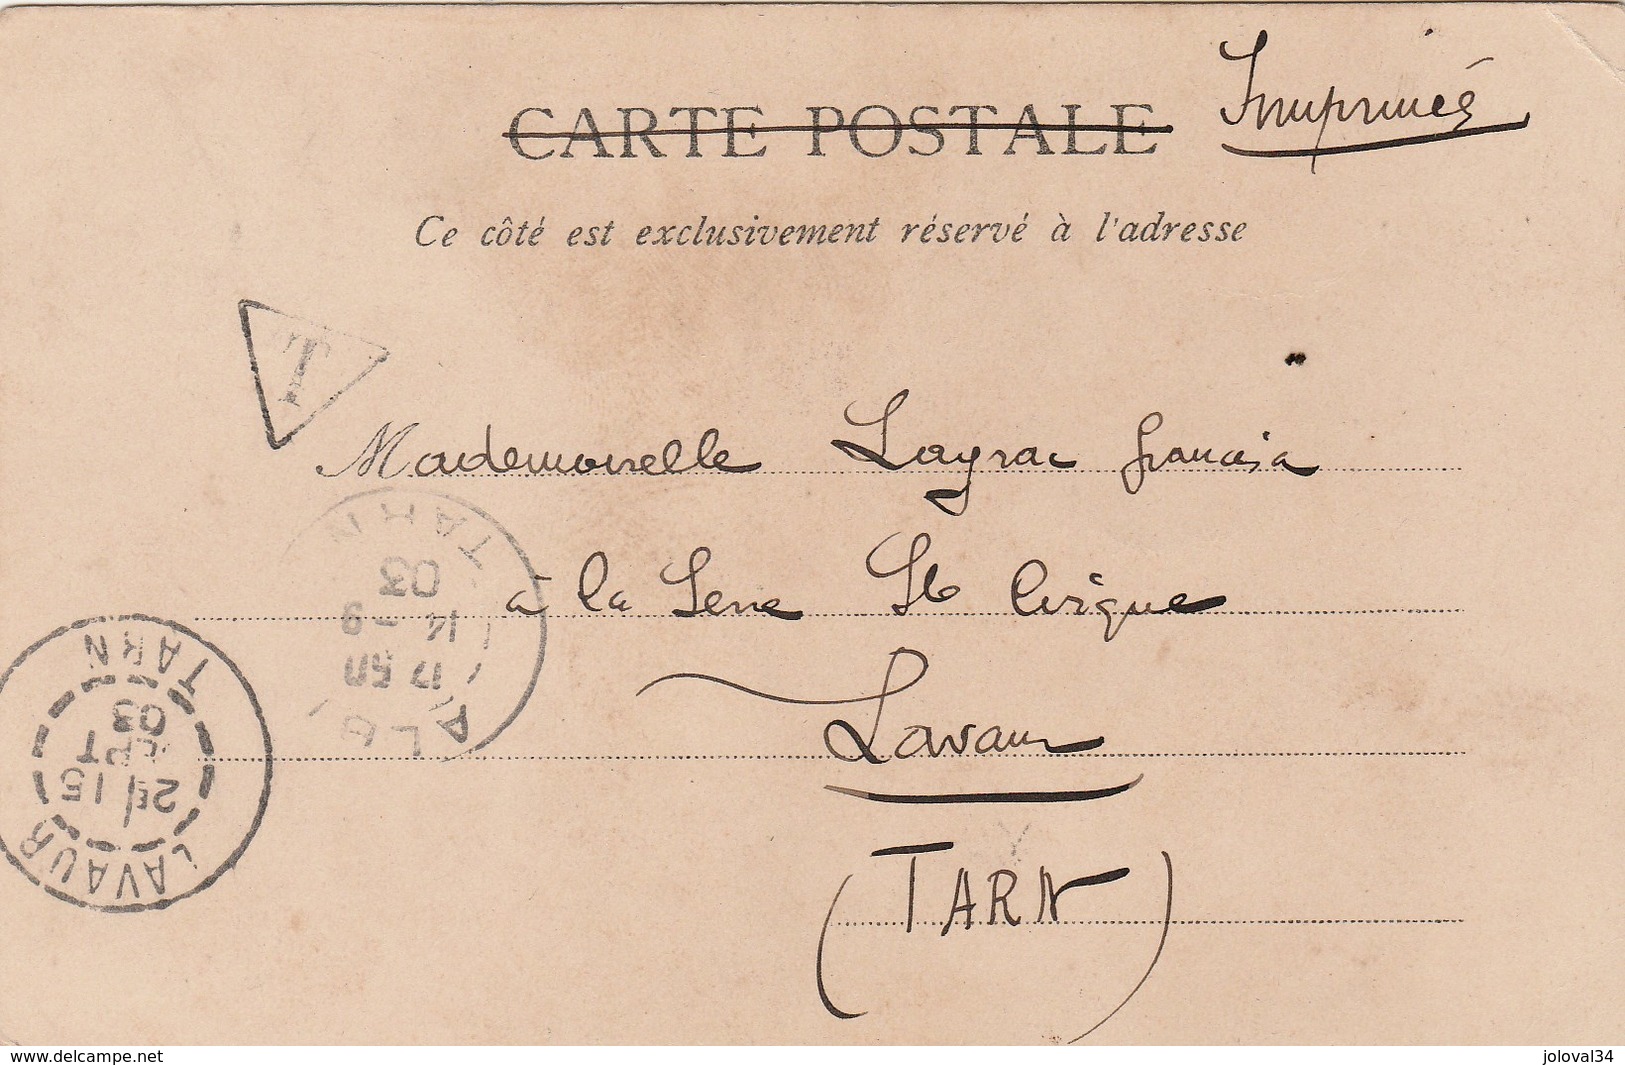 CARTE POSTALE Imprimés
Ce côté est exclusivement réservé à l'adresse
T
Mademoiselle Layrac francisia
à la Serre St Cirgue
Lavaur
(TARN)
ALBI TARN
14 - 9
03
LAVAUR TARN
2E / 15
SEPT
03
www.delcampe.net
joloval34